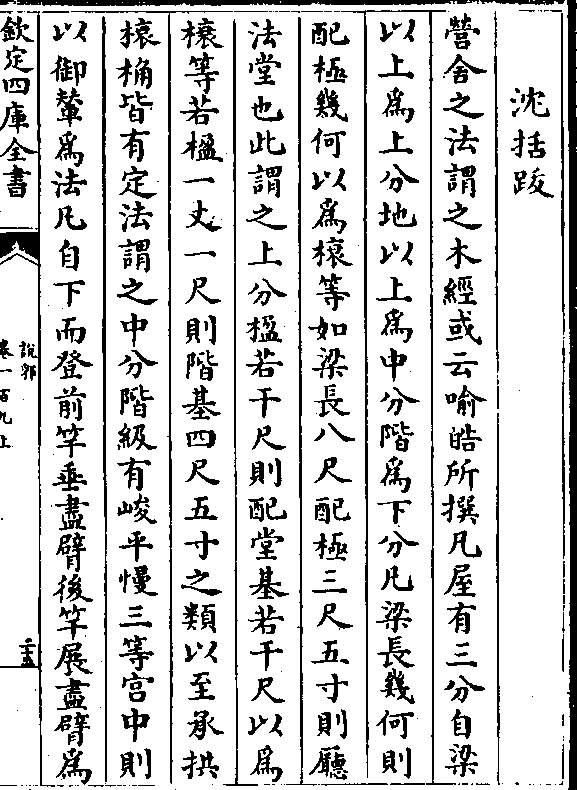 沈括跋
營舍之法謂之木經或云喻皓所撰凡屋有三分自梁
以上爲上分地以上爲中分階爲下分凡梁長幾何則
配極幾何以爲榱等如梁長八尺配極三尺五寸則廳
法堂也此謂之上分楹若干尺則配堂基若干尺以爲
榱等若楹一丈一尺則階基四尺五寸之類以至承拱
榱桷皆有定法謂之中分階級有峻平慢三等宫中則
以御輦爲法凡自下而登前竿垂盡臂後竿展盡臂爲
欽定四庫全書
說郛
卷一百九上
三五